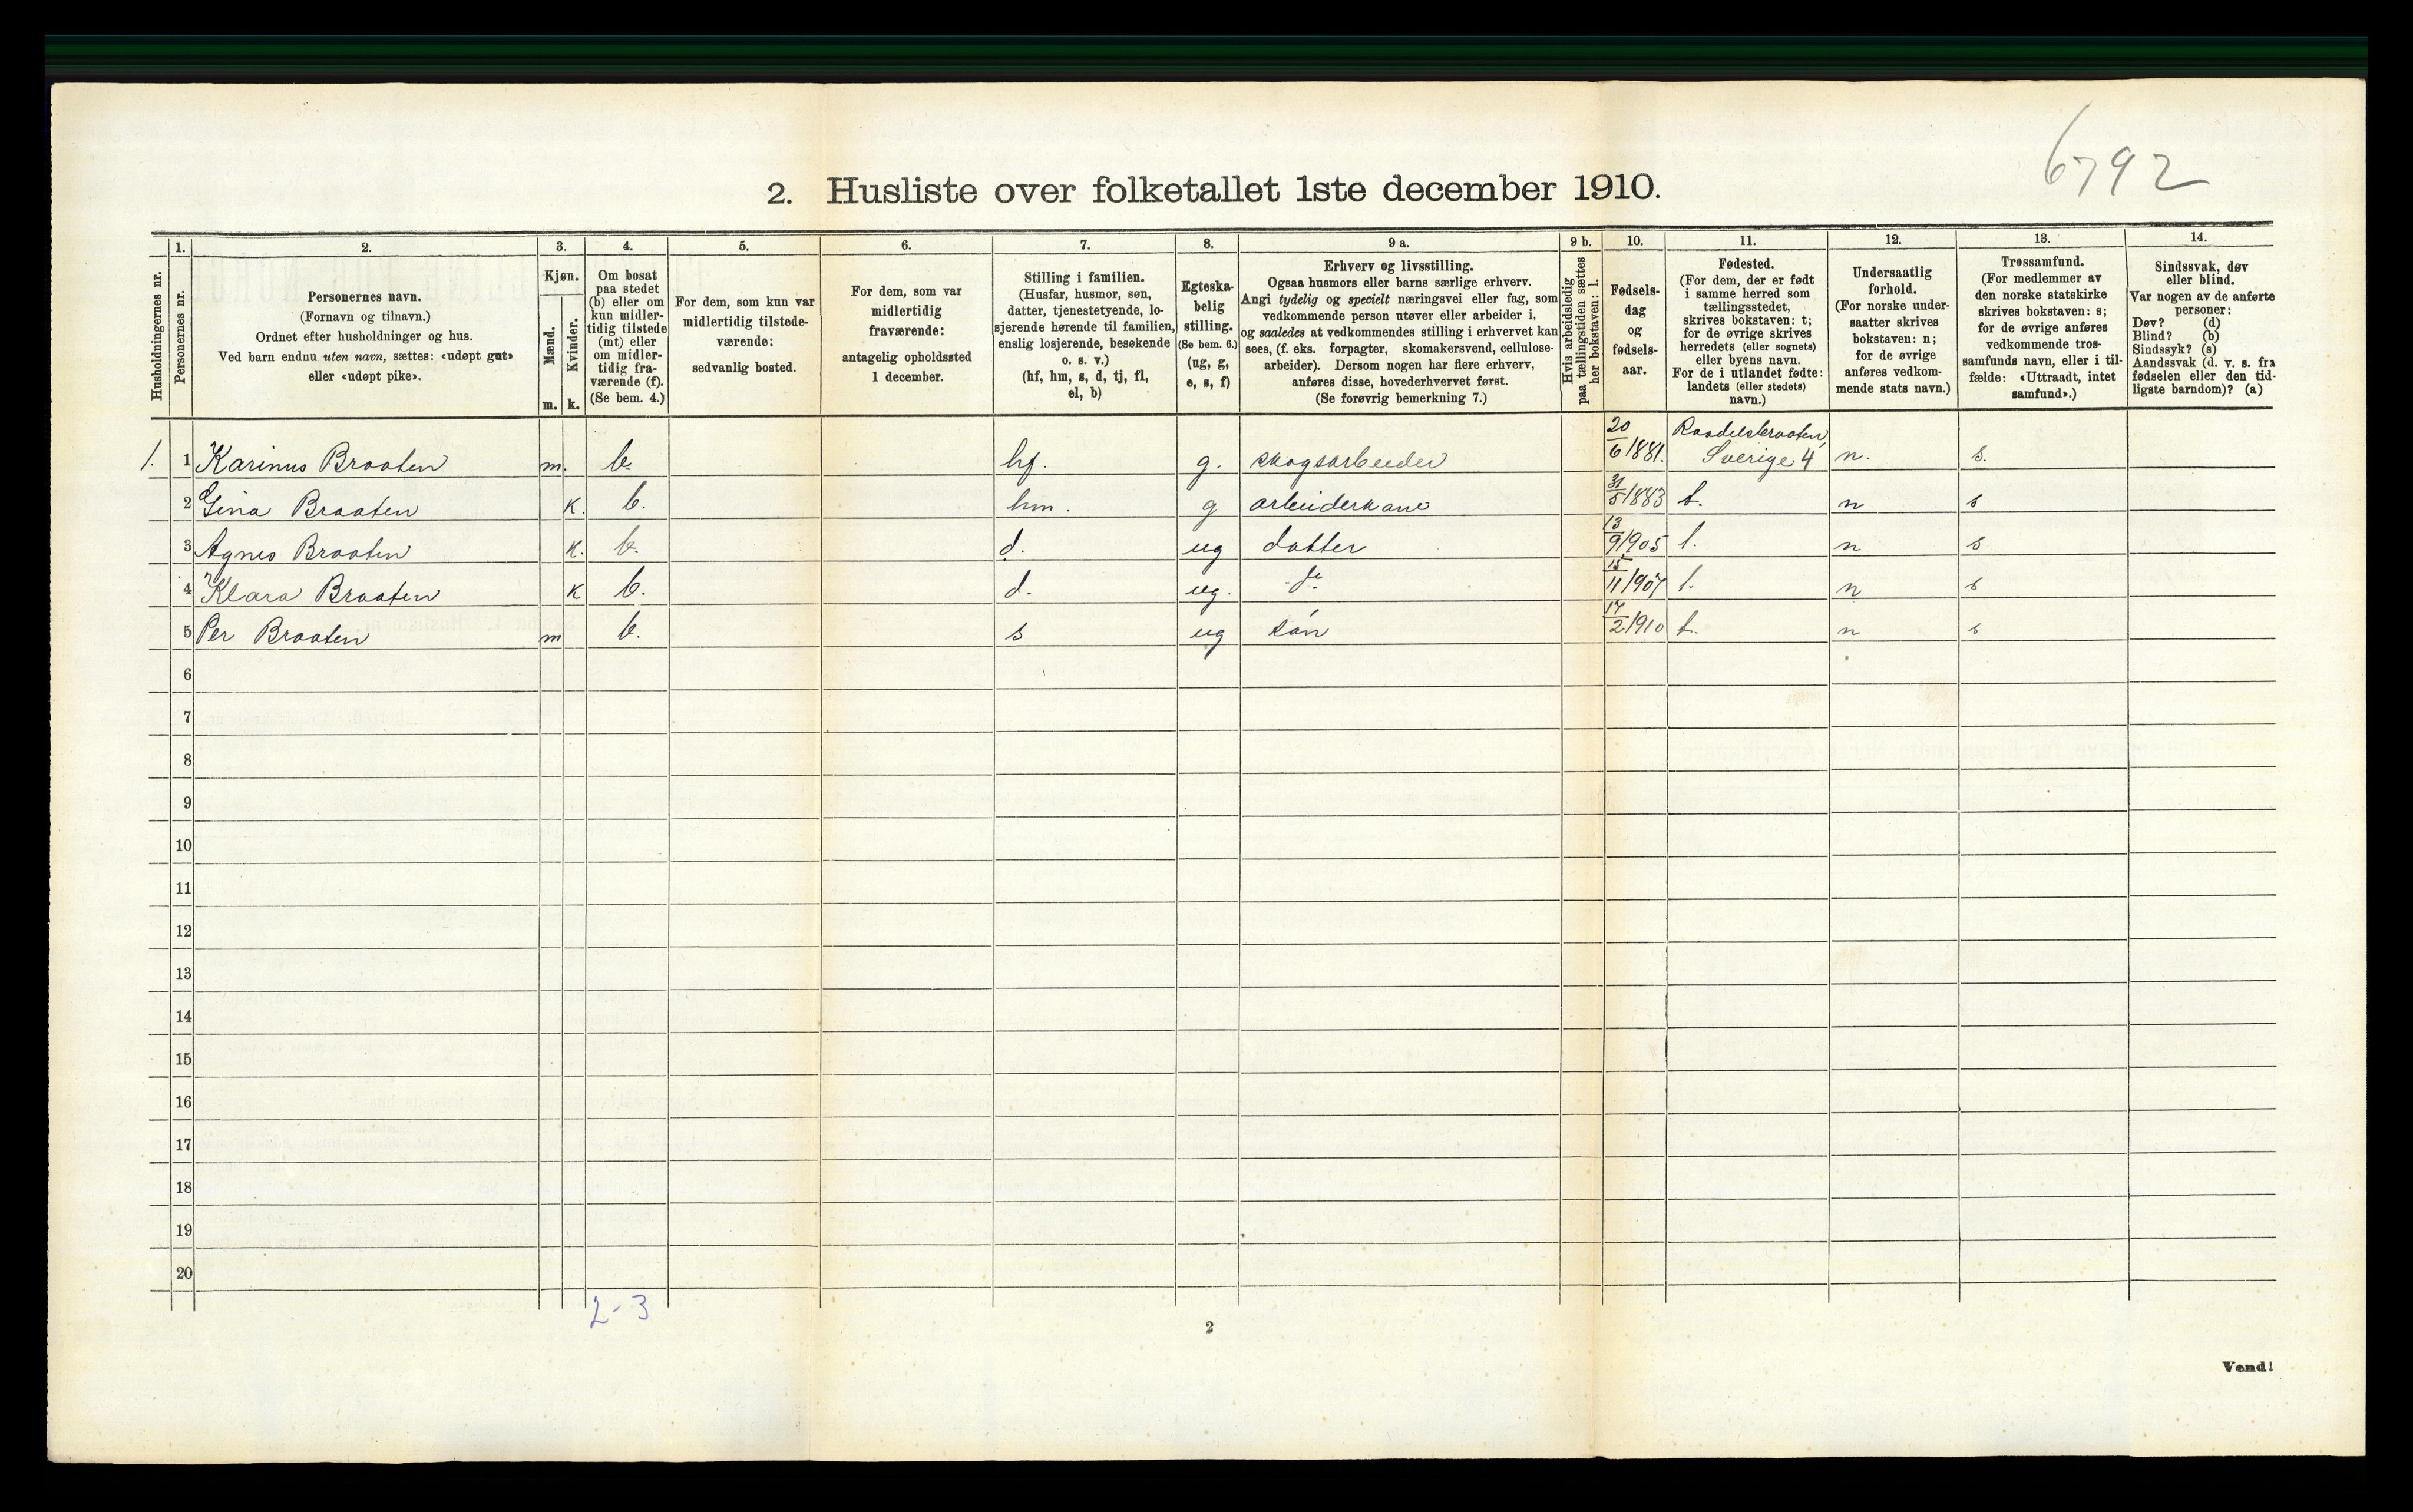 6792
2. Husliste over folketallet 1ste december 1910.
Husholdningernes nr.
1.
Personernes nr.
2.
Personernes navn.
(Fornavn og tilnavn.)
Ordnet efter husholdninger og hus.
Ved barn endnu uten navn, sættes: «udøpt gut»
eller «udøpt pike».
3.
Kjøn.
Mænd.
Kvinder.
m. k.
4.
Om bosat
paa stedet
(b) eller om
kun midler-
tidig tilstede
(mt) eller
om midler-
tidig fra-
værende (f).
(Se bem. 4.)
5.
For dem, som kun var
midlertidig tilstede-
værende:
sedvanlig bosted.
6.
For dem, som var
midlertidig
fraværende:
antagelig opholdssted
1 december.
7.
Stilling i familien.
(Husfar, husmor, søn,
datter, tjenestetyende, lo-
sjerende hørende til familien,
enslig losjerende, besøkende
o. s. v.)
(hf, hm, s, d, tj, fl,
el, b)
8.
Egteska-
belig
stilling.
(Se bem. 6.)
(ug, g,
e, s, f)
9 a.
Erhverv og livsstilling.
Ogsaa husmors eller barns særlige erhverv.
Angi tydelig og specielt næringsvei eller fag, som
vedkommende person utøver eller arbeider i,
og saaledes at vedkommendes stilling i erhvervet kan
sees, (f. eks. forpagter, skomakersvend, cellulose-
arbeider). Dersom nogen har flere erhverv,
anføres disse, hovederhvervet først.
(Se forøvrig bemerkning 7.)
9 b.
Hvis arbeidsledig
paa tællingstiden sættes
her bokstaven: l.
10.
Fødsels-
dag
og
fødsels-
aar.
11.
Fødested.
(For dem, der er født
i samme herred som
tællingsstedet,
skrives bokstaven: t;
for de øvrige skrives
herredets (eller sognets)
eller byens navn.
For de i utlandet fødte:
landets (eller stedets)
navn.)
12.
Undersaatlig
forhold.
(For norske under-
saatter skrives
bokstaven: n;
for de øvrige
anføres vedkom-
mende stats navn.)
13.
Trossamfund.
(For medlemmer av
den norske statskirke
skrives bokstaven: s;
for de øvrige anføres
vedkommende tros-
samfunds navn, eller i til-
fælde: «Uttraadt, intet
samfund».)
14.
Sindssvak, døv
eller blind.
Var nogen av de anførte
personer:
Døv? (d)
Blind? (b)
Sindssyk? (s)
Aandssvak (d. v. s. fra
fødselen eller den tid-
ligste barndom)? (a)
1. 1 Karinus Braaten m. b. hf. g. skogsarbeider 20/6 1881. Sverige 4 n. s.
2 Gina Braaten k. b. hm. g arbeiderkane 31/5 1883 t. n s
3 Agnes Braaten k. b. d. ug datter 13/9 1905 t. n s
4 Klara Braaten k b. d. ug. do 15/11 1907 t. n s
5 Per Braaten m b. s ug sön 17/2 1910 t. n s
6
7
8
9
10
11
12
13
14
15
16
17
18
19
20
2-3
2
Vend!